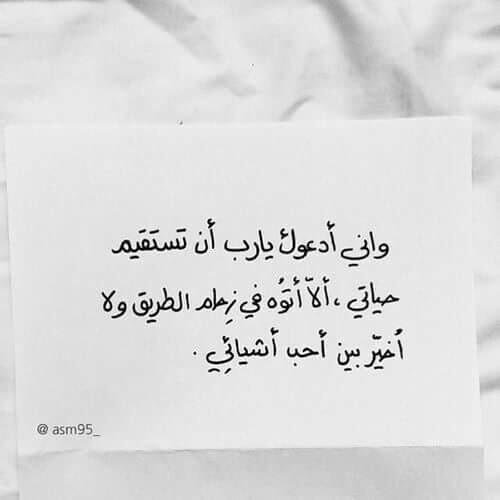 واني أدعوك يارب أن تستقيم
حياتي ، ألاّ أتوُه في زِحام الطريق ولا
أُخيّر بين أحب أشيائِي .
@ asm95_